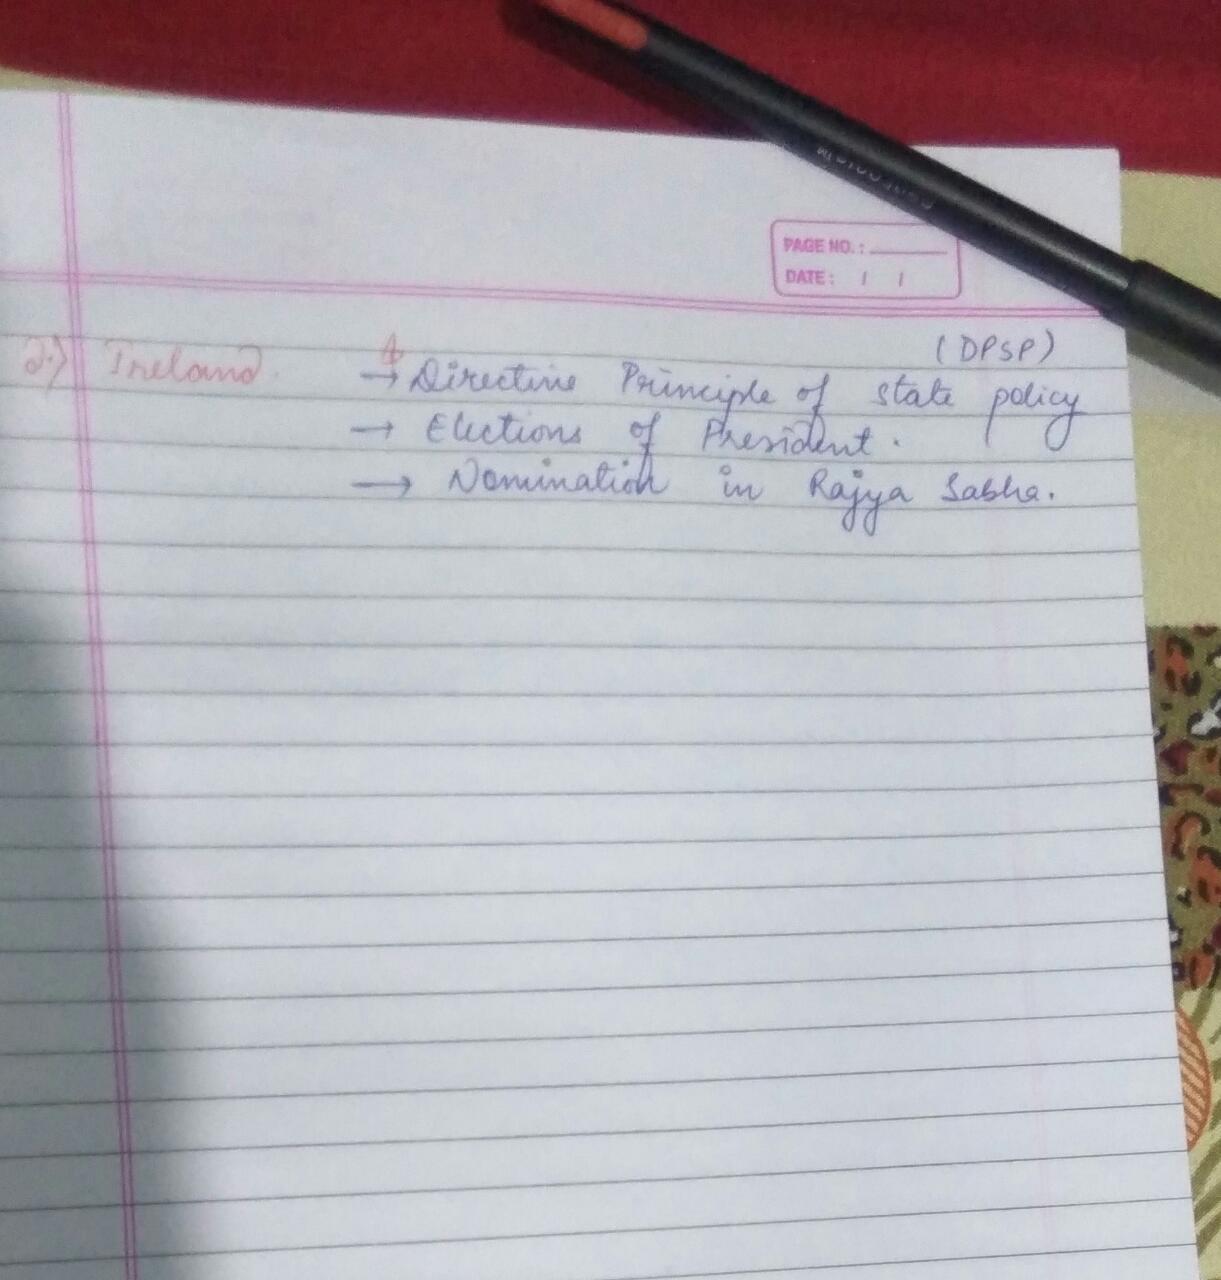 PAGE NO.:
DATE: / /
(DPSP)
2.) Ireland. → Directive Principle of state policy
→ Elections of President.
→ Nomination in Rajya Sabha.